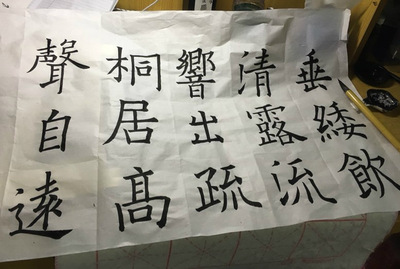 垂緌飲
清露流
響出疏
桐居髙
聲自遠